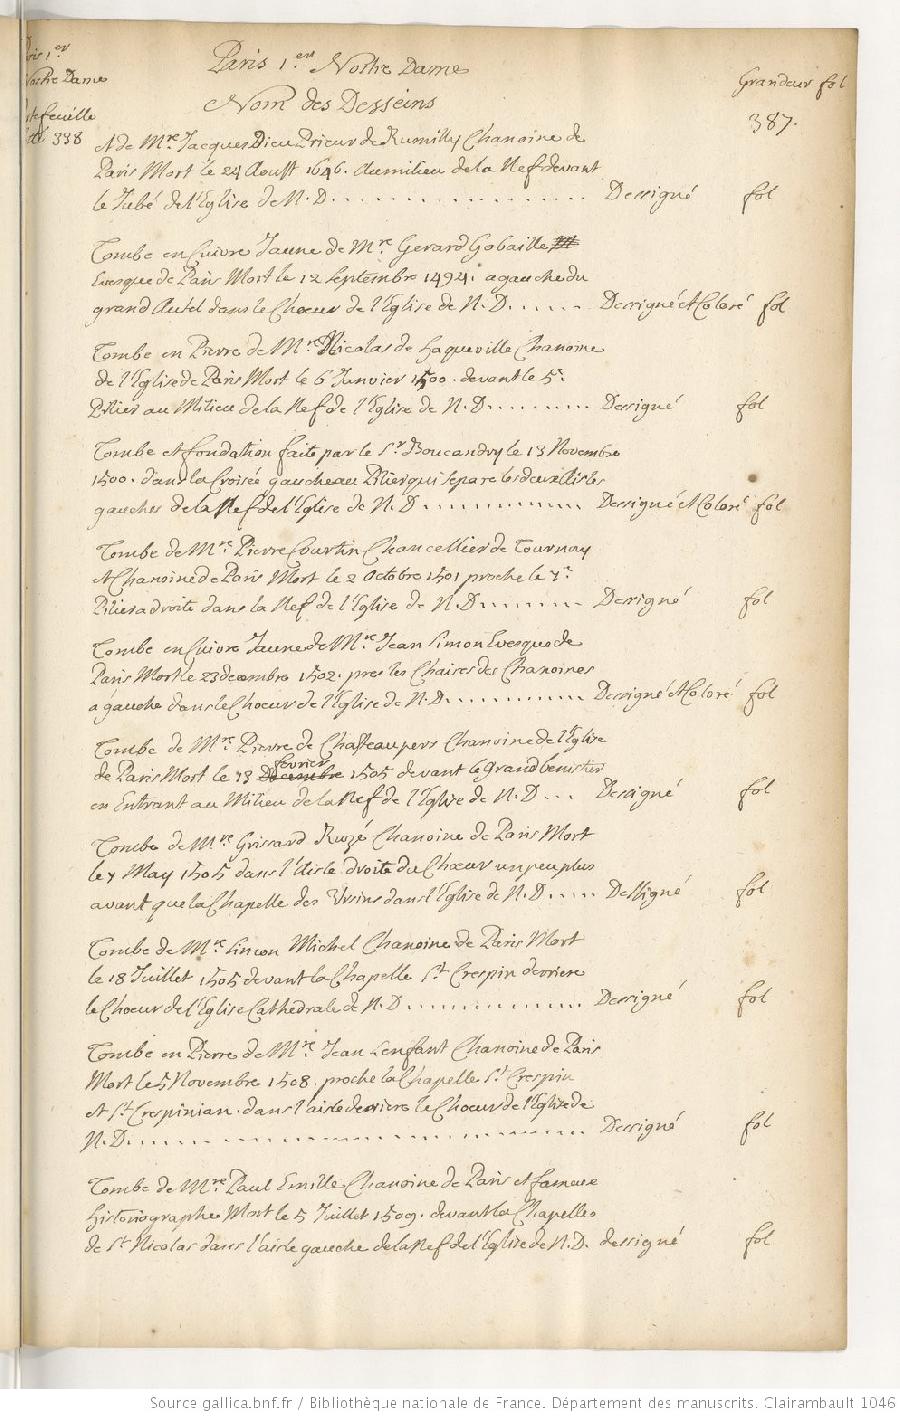 Paris 1.er Notre Dame
Nom des Desseins
Grandeur fol
387.
Paris 1.er
Notre Dame
Portefeuille
338
et de Mre. Jacques Dieu Prieur de Rumilly Chanoine de
Paris Mort le 24 Aoust 1646. au milieu de la Nef devant
le Jubé de l'Eglise de N. D. . . . . . . . . . Dessigné fol
Tombe en Cuivre Jaune de Mr. Gerard Gobaille
Evesque de Paris Mort le 12 Septembre 1494. a gauche du
grand Autel dans le Chœur de l'Eglise de N. D. . . . . . Dessigné et Coloré fol
Tombe en Pierre de Mr. Nicolas de Haqueville Chanoine
de l'Eglise de Paris Mort le 6 Janvier 1500. devant le 5e.
Pilier au Milieu de la Nef de l'Eglise de N. D. . . . . . . . Dessigné fol
Tombe et fondation faite par le Sr. Boucandry le 13 Novembre
1500. dans la Croisée gauche au Pilier qui separe les deux aisles
gauches de la Nef de l'Eglise de N. D. . . . . . . . . Dessigné et Coloré fol
Tombe de Mre. Pierre Courtin Chancellier de Tournay
et Chanoine de Paris Mort le 2 Octobre 1501 proche le 7e.
Pilier a droite dans la Nef de l'Eglise de N. D. . . . . . . Dessigné fol
Tombe en Cuivre Jaune de Mre. Jean Simon Evesque de
Paris Mort le 23 decembre 1502. pres les Chaires des Chanoines
a gauche dans le Chœur de l'Eglise de N. D. . . . . . . . . Dessigné et Coloré fol
Tombe de Mre. Pierre de Chasteaupers Chanoine de l'Eglise
de Paris Mort le 13 Decembre fevrier 1505 devant le grand benistier
en Entrant au Milieu de la Nef de l'Eglise de N. D. . . Dessigné fol
Tombe de Mre. Grisard Ruzé Chanoine de Paris Mort
le 7 May 1505 dans l'Aisle droite du Chœur un peu plus
avant que la Chapelle des Ursins dans l'Eglise de N. D. . . . . Dessigné fol
Tombe de Mre. Simeon Michel Chanoine de Paris Mort
le 18 Juillet 1505 devant la Chapelle St. Crespin derriere
le Chœur de l'Eglise Cathedrale de N. D. . . . . . . . . . Dessigné fol
Tombe en Pierre de Mre. Jean Lenfant Chanoine de Paris
Mort le 5 Novembre 1508. proche la Chapelle St. Crespin
et St. Crespinian. dans l'aisle derriere le Chœur de l'Eglise de
N. D. . . . . . . . . . . . . . . . . . Dessigné fol
Tombe de Mre. Paul Emille Chanoine de Paris et fameux
historiographe Mort le 5 Juillet 1509. devant la Chapelle
de St. Nicolas dans l'aisle gauche de la Nef de l'Eglise de N. D. dessigné fol
Source gallica.bnf.fr / Bibliothèque nationale de France. Département des manuscrits. Clairambault 1046